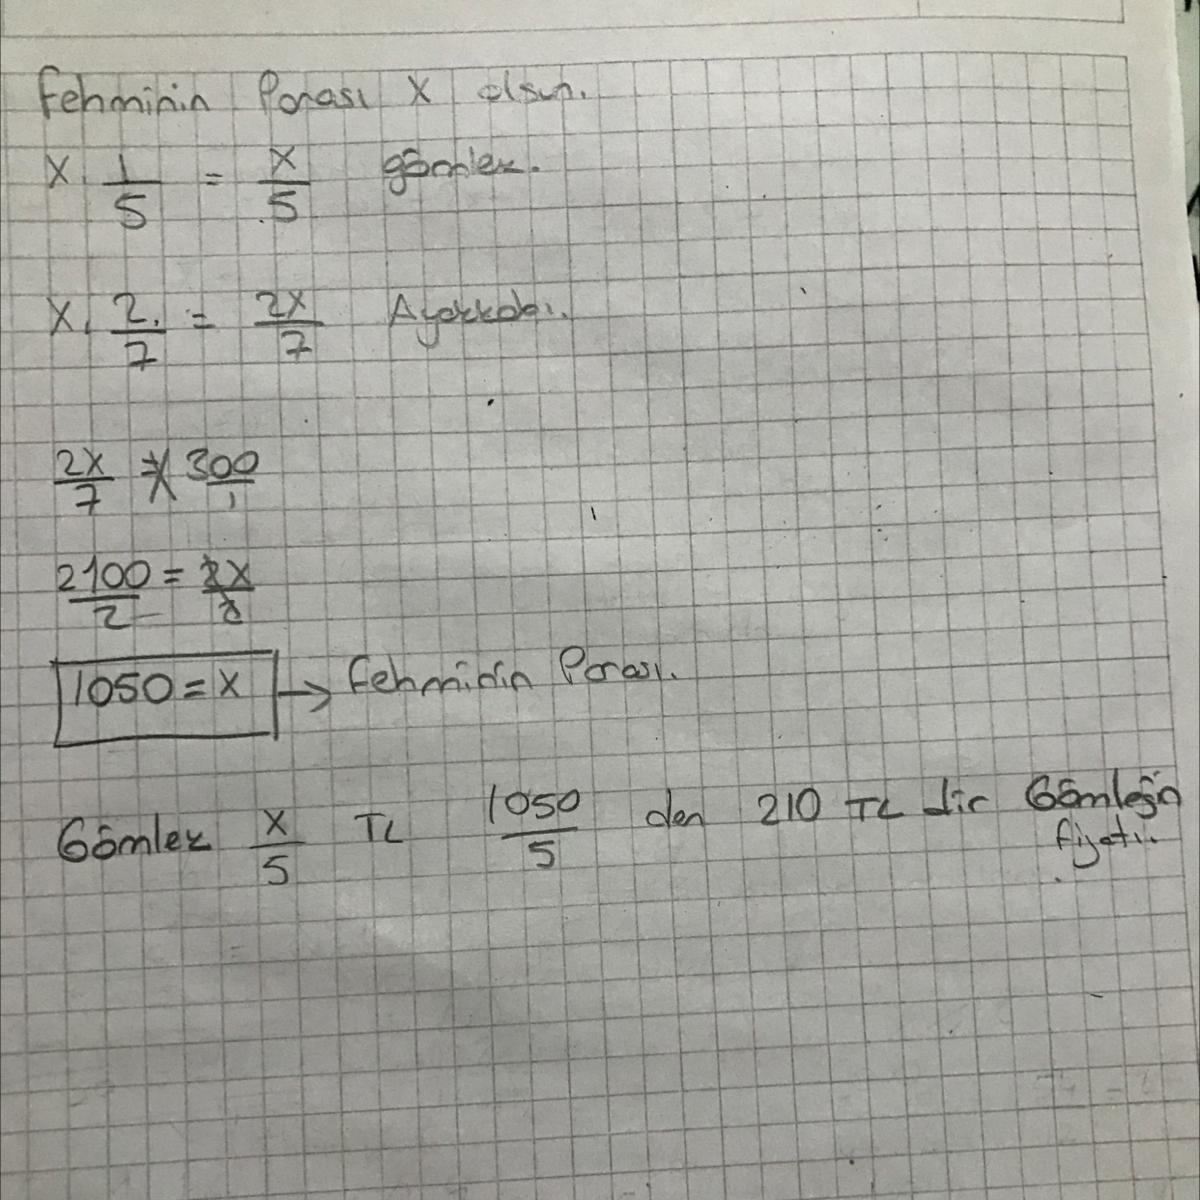 Fehminin Parası x olsun.
x . 1/5 = x/5 gömlek.
x . 2/7 = 2x/7 Ayakkabı.
2x/7 = 300/1
2100/2 = 2x/2
1050 = x → Fehminin Parası.
Gömlek x/5 TL 1050/5 den 210 TL dir Gömleğin
fiyatı..